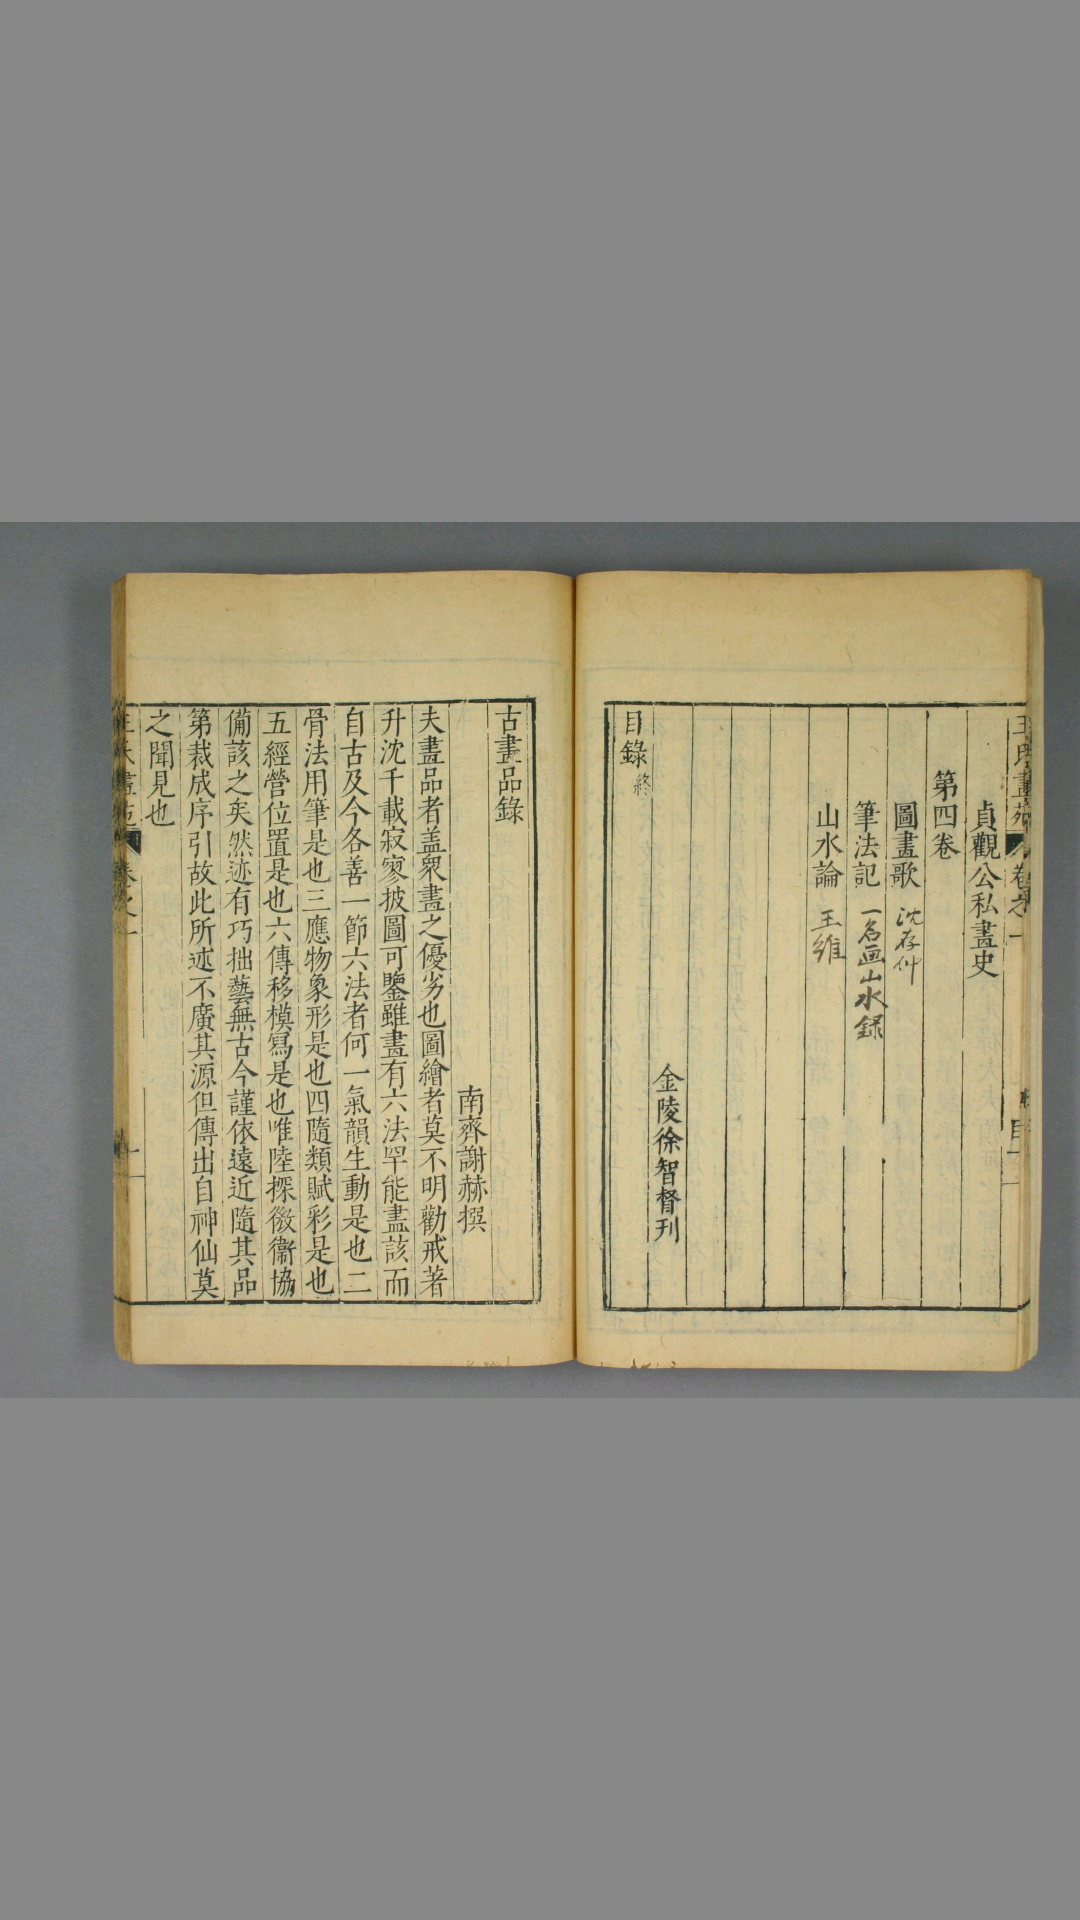 王氏畫苑 卷之一 目
貞觀公私畫史
第四卷
圖畫歌 沈存仲
筆法記 一名画山水録
山水論 王維
金陵徐智督刊
目錄終
古畫品錄
南齊謝赫撰
夫畫品者盖衆畫之優劣也圖繪者莫不明勸戒著
升沈千載寂寥披圖可鑒雖畫有六法罕能盡該而
自古及今各善一節六法者何一氣韻生動是也二
骨法用筆是也三應物象形是也四隨類賦彩是也
五經營位置是也六傳移模寫是也唯陸探微衞協
備該之矣然迹有巧拙藝無古今謹依遠近隨其品
第裁成序引故此所述不廣其源但傳出自神仙莫
之聞見也
王氏畫苑 卷之一 一